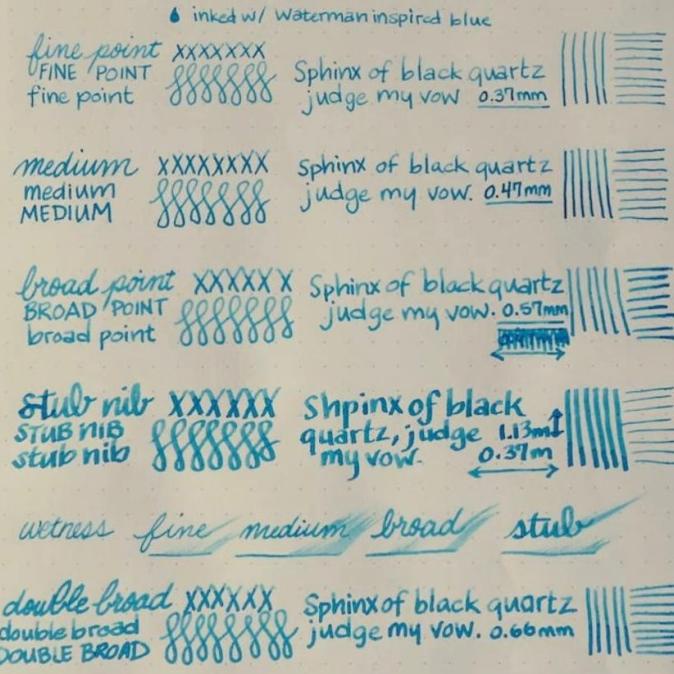 inked w/ Waterman inspired blue
fine point xxxxxxx
FINE POINT
fine point
Sphinx of black quartz
judge my vow 0.37mm
medium xxxxxxxx
medium
MEDIUM
Sphinx of black quartz
judge my vow. 0.47mm
broad point xxxxxx
BROAD POINT
broad point
Sphinx of black quartz
judge my vow. 0.57mm
stub nib xxxxxx
STUB NIB
stub nib
Shpinx of black
quartz, judge 1.13m
my vow. 0.37m
wetness fine medium broad stub
double broad xxxxxx
double broad
DOUBLE BROAD
Sphinx of black quartz
judge my vow. 0.66mm